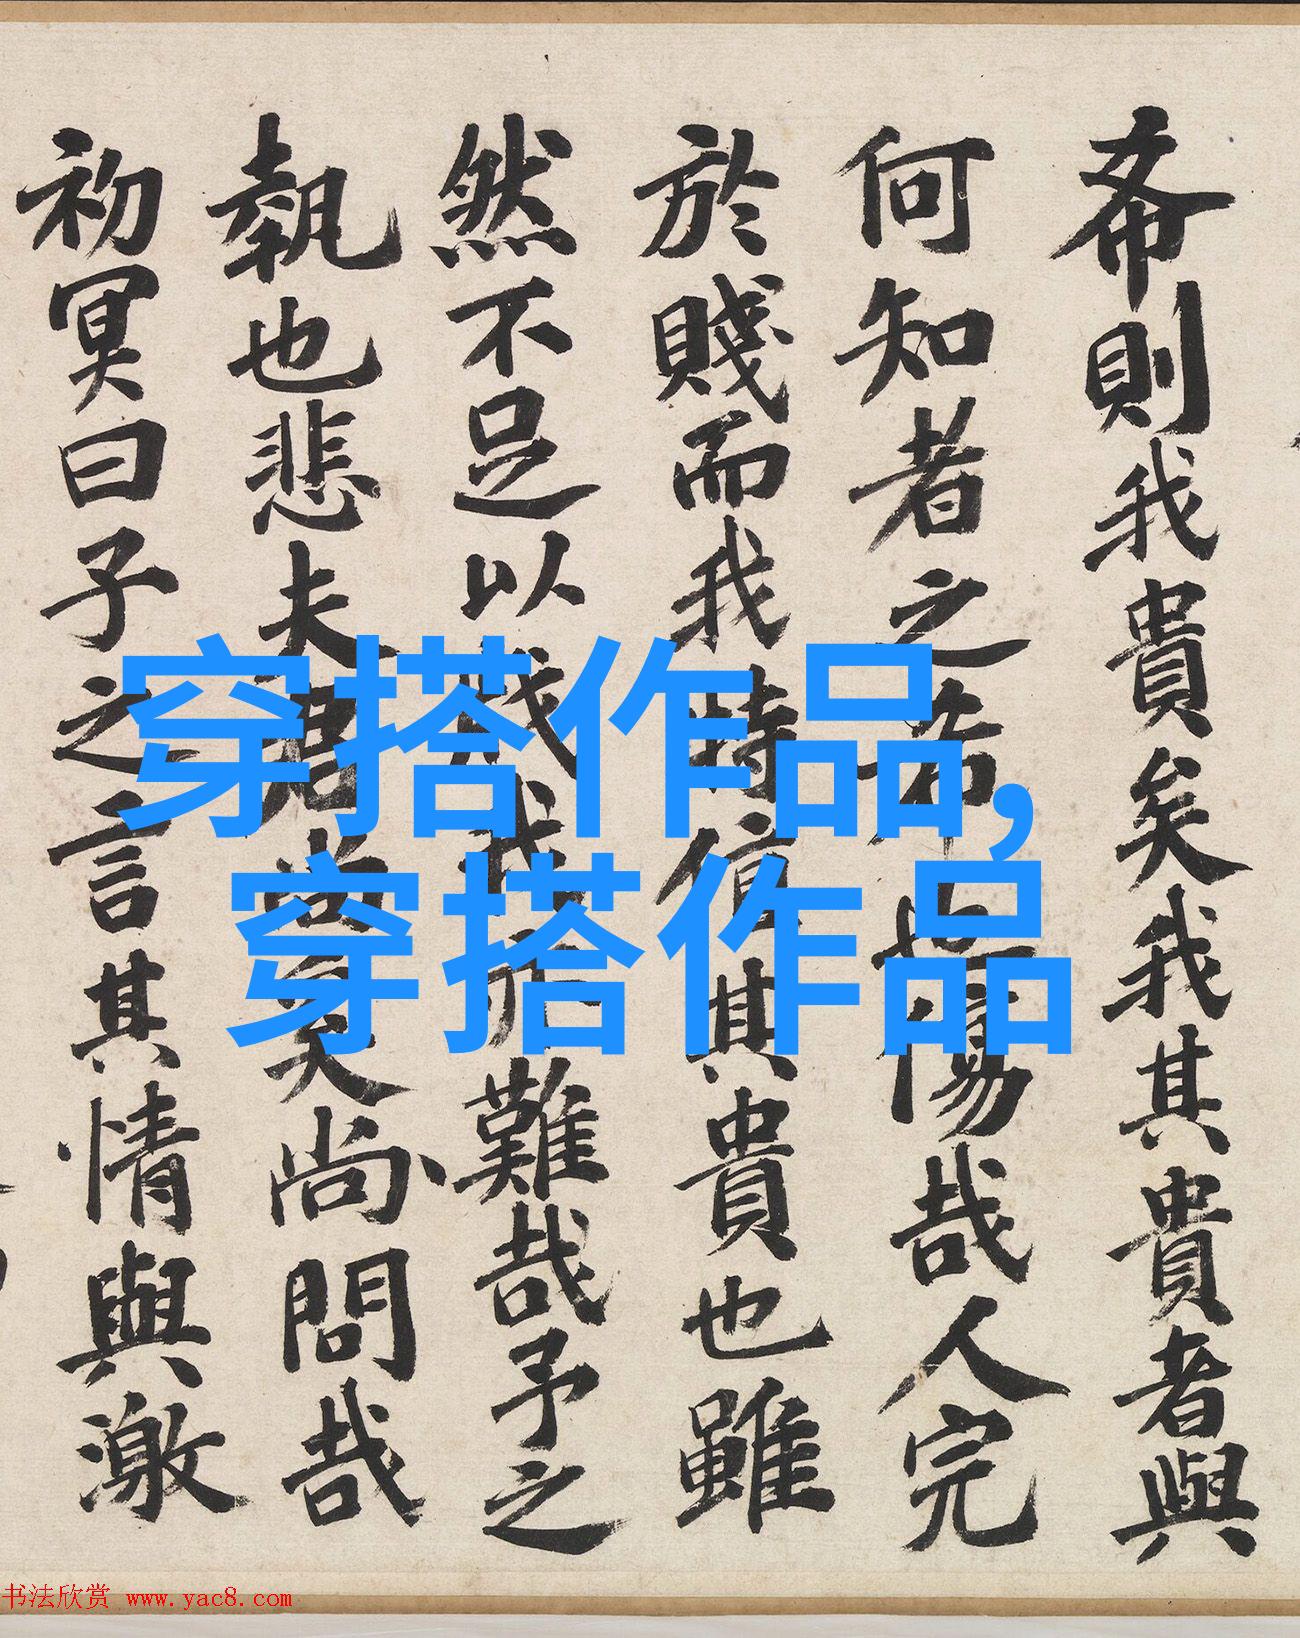 希則我貴矣我其貴者與
何知者之希也傷哉人完
於賤而我時信其貴也雖
然不足以我於難哉予之
執也悲夫君尚矣尚問哉
初冥曰子之言其情與激
穿搭作品,
穿搭作品
书法欣赏 www.yac8.com